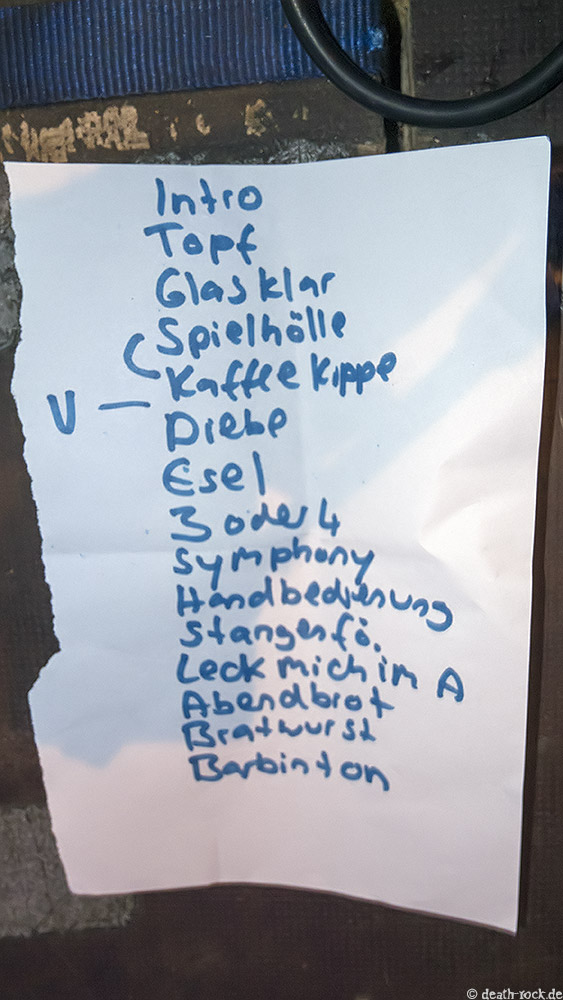 Intro
Topf
Glasklar
Spielhölle
Kaffee Kippe
V —
Diebe
Esel
3 oder 4
Symphony
Handbedienung
Stangenfö.
Leck mich im A
Abendbrot
Bratwurst
Barbinton
© death-rock.de